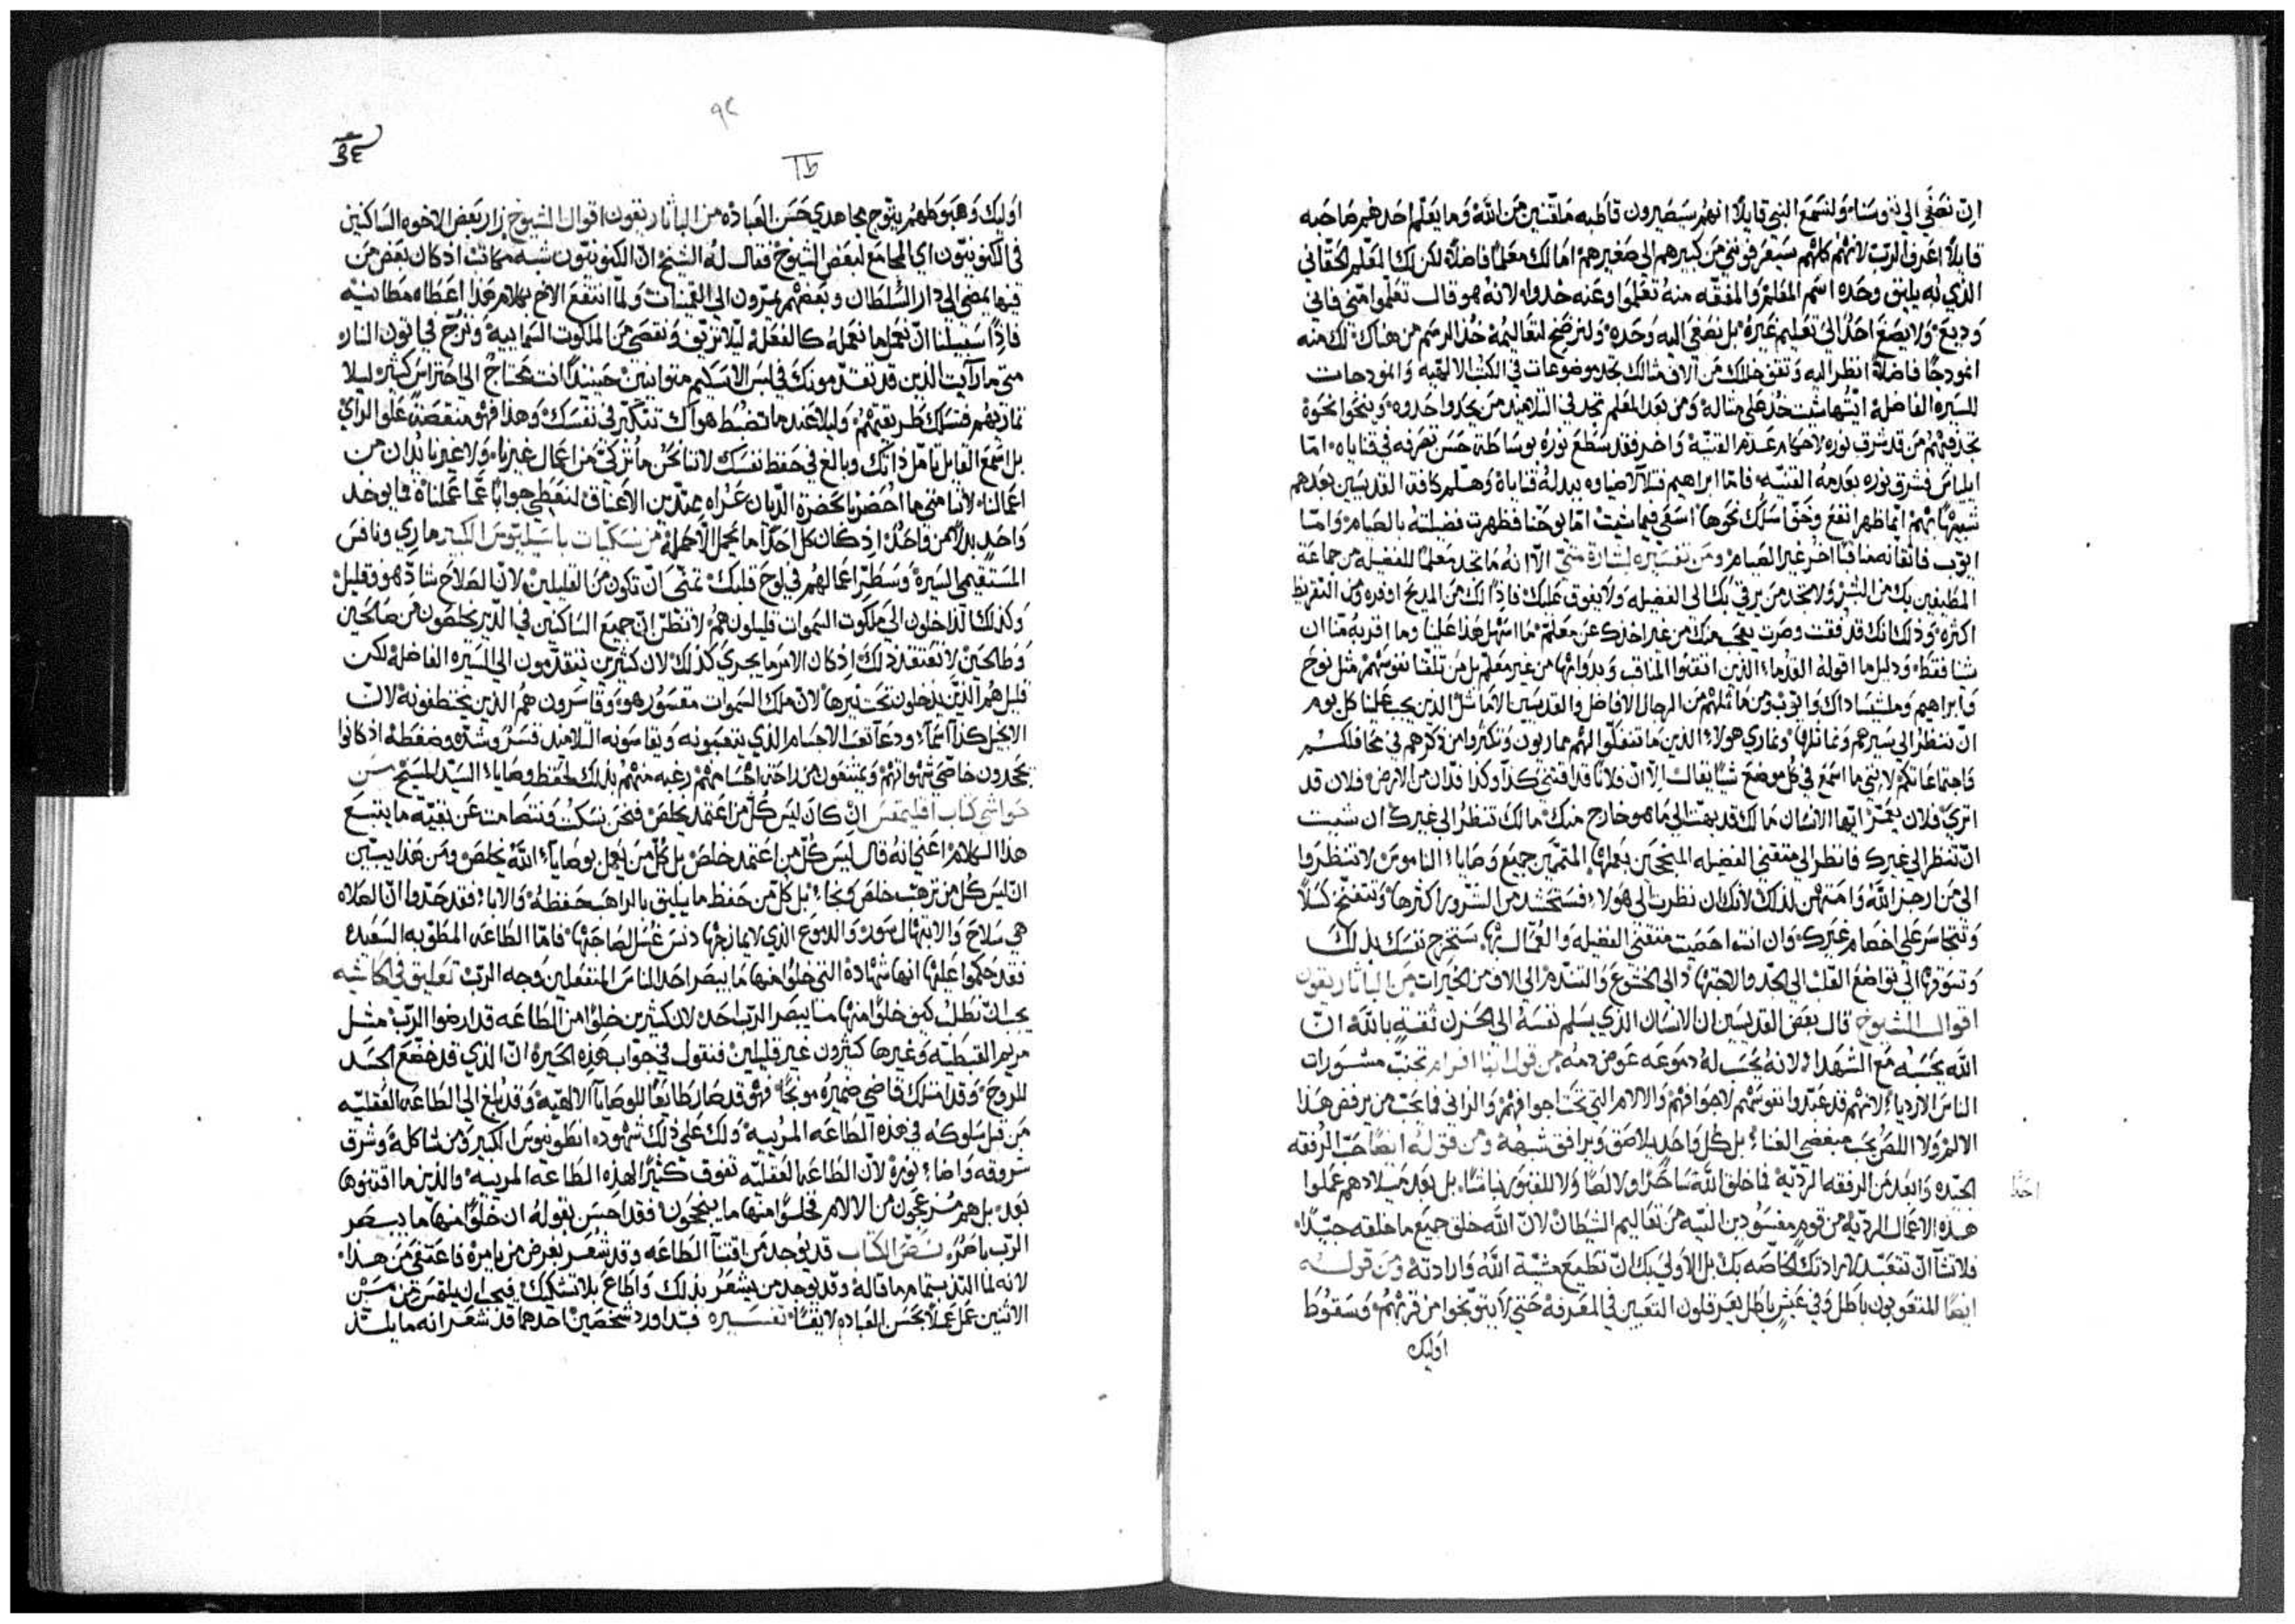 ان نصغي الي نفوسنا ولنسمع النبي قايلًا انهم سيصيرون قاطبه ملقنين من الله وما يعلم احدهم صاحبه
قايلًا اعرف الرب لانهم كلهم سيعرفونني من كبيرهم الي صغيرهم اما لك معلمًا فاضلًا لكن لك المعلم الحقاني
الذي به يليق وحده اسم المعلم والمفقه منه تعلموا وعنه خدوا لانه هو قال تعلموا مني فاني
وديع ولا يصغ احد الي تعليم غيره بل نصغي اليه وحده ولنرضخ لتعاليمه خذ الرسم من هناك لك منه
انمودجًا فاضلًا انظر اليه وتقن حالك من الاف مثالك تجد موضوعات في الكتب الالهيه وانمودجات
للسيره الفاضله ايتها شيت خذ على مثاله ومن بعد المعلم تجد في التلاميد من يحدوا حدوه وينحوا نحوه
تجد فيهم من قد شرف نوره لاحكام عدم القنيه واخر فقد سطع نوره بوساطة حسن تصرفه في قناياه اما
ايلياس فشرق نوره بعدمه القنيه فاما ابراهيم فتلالا ضياوه ببدله قناياه وهلم كافة القديسين بعدهم
انما ظهر انفع وحقا سلك نحوها اسعي فيما شيت اما يوحنا فظهرت فضيلته بالصيام واما
ايوب فاتقانه صنافا اخر غير الصيام ومن تفسيره لبشارة متي الا انه ما تجد معلمًا للفضيله من جماعة
المطيفين بك من البشر ولا تجد من يرقي بك الي الفضيله ولا يفوق عليك فاذًا لك من المديح اوفره ومن التقريظ
اكثره وذلك انك قد فقت وصرت يعجب منك من غير اخذك عن معلم ما اسهل هذا علينا وما اقربه منا ان
شنا فقط ودليل ما اقوله القدماء الذين اتقنوا المناقب وبدوا بها من غير معلم بل من تلقا نفوسهم مثل نوح
وابراهيم وملشيساداك وايوب ومن ماثلهم من الرجال الافاضل والقديسين الاماثل الذين يجب علينا كل يوم
ان ننظر الي سيرهم ونماثلها ونماري هولاء الذين ما تنفكوا انهم ممارون وتكثروا من ذكرهم في محافلكم
واجتماعاتكم لانني ما اسمع في كل موضع شيًا يقال الا ان فلانًا قد اقتني كذا وكذا فدان من الارض فلان قد
اثري فلان يعمر ايها الانسان مالك قد بهت الي ما هو خارج منك مالك تنظر الي غيرك ان شيت
ان تنظر الي غيرك فانظر الي متقني الفضيله المنجحين بعملها المتممين جميع وصاياء الناموس لا تنظروا
الي من ارجز الله وامتهن لذلك لانك ان نظرت الي هولاء فستحشد من الشرور اكثرها وتنتفخ كسلًا
وتتجاسر على اخصام غيرك وان انت احصيت متقني الفضيله والعمال بها ستخرج نفسك بذلك
وتسوقها الي تواضع القلب الي الجد والاجتهاد والي الخشوع والتندم الي الاف من الخيرات من الباتاريقون
اقوال الشيوخ قال بعض القديسين ان الانسان الذي يسلم نفسه الي الحزن ثقة بالله ان
الله يحسبه مع الشهدا لانه يحسب له دموعه عوض دمه من قول انبا افرام تجنب مشورات
الناس الارديا لانهم قد عبدوا نفوسهم لاجوافهم والالام التي تحت اجوافهم والزاني فما يحب من يرفض هذا
الالم ولا اللص يحب مبغضي الغنا بل كل واحد يلاصق ويرافق شبهه ومن قوله ايضًا حب الرفقه
الجيده وابعد من الرفقه الرديه فما خلق الله ساحرًا ولا لصًا ولا للقبور نباشًا بل بعد ميلادهم عملوا
هذه الاعمال الرديه من قوم مفسودين النيه من تعاليم الشيطان لان الله خلق جميع ما خلقه جيدًا
فلا تشآ ان تتعبد لارادتك الخاصه بك بل الاولي بك ان تطيع مشية الله وارادته ومن قوله
ايضًا للمتعوبون باطل وفي عش باطل يعرقلون التعيين في المعرفة حتي لا يتوبخوا من قربهم وسقوط
اوليك
احدًا
٩٢
اوليك وهبوطهم يتوج مجاهدي حسن العباده من الباتاريقون اقوال الشيوخ زار بعض الاخوه الساكنين
في الكنوبيون اي المجامع لبعض الشيوخ فقال له الشيخ ان الكنوبيون شبه مكانت اذ كان بعض من
فيها يمضي الي دار السلطان وبعضهم يمرون الي القمينات ولما انتفع الاخ بكلام هذا اعطاه مطانيه
فاذًا سبيلنا ان نعمل ما نعمله كالفعله ليلا نزيف ونقصى من الملكوت السماييه ونزج في اتون النار
متي ما رايت الذين قد تقدمونك في لبس الاسكيم متوانين حينيذ انت محتاج الي احتراس كثير ليلا
تمازيهم فتسلك طريقتهم وليلا عندما تضبط هواك تتكبر في نفسك وهذا فهو منقصة علو الراي
بل اسمع القايل تامل ذاتك وبالغ في حفظ نفسك لاننا نحن ما نزكى من اعمال غيرنا ولا غيرنا يدان من
اعمالنا لاننا متي ما احضرنا بحضرة الديان عراه ممتدين الاعناق لنعطي جوابًا عما عملناه فما يوخد
واحد بدلًا من واحد اذ كان كل احد انما يحمل الاحمله من نسكيات باسيليوس الكبير ماري ونافس
المستقيمي السيره وسطر اعمالهم في لوح قلبك تمنى ان تكون من القليلين لان الصلاح شاذ هو وقليل
وكذلك الداخلون الي ملكوت السموات قليلون هم لا تظن ان جميع الساكنين في الدير يخلصون من صالحين
وطالحين لا تعتقد ذلك اذ كان الامر ما يجري كذلك لان كثيرين يتقدمون الي السيره الفاضله لكن
قليل هم الذين يدخلون تحت نيرها لان ملك السموات مقسور هو وقاسرون هم الذين يختطفونه لان
الانجيل كذا اسما ودعا تعب الاجسام الذي يتعبونه ويقاسونه التلاميد قسر وشده وضغطه اذ كانوا
يجحدون خاصي شهواتهم ويمتنعون من راحة اجسامهم رغبه منهم بذلك لحفظ وصاياء السيد المسيح من
حواشي كتاب اقليمقس ان كان ليس كل من اعتمد يخلص فنحن نسكت ونتصامت عن بقية ما يتبع
هذا الكلام اعني انه قال ليس كل من اعتمد خلص بل كل من يعمل بوصاياء الله يخلص ومن هذا يبين
ان ليس كل من ترهب خلص ونجا بل كل من حفظ ما يليق بالراهب حفظه والابا فقد حدوا ان الصلاه
هي سلاح والابتهال سور والدموع الذي لا يمازجها دنس غسل لصاحبها فاما الطاعه المطوبه السعيده
فقد حكموا عليها انها شهاده التي خلوًا منها ما يبصر احد الناس المنفعلين وجه الرب تعليق في الحاشيه
يجب ان نطلب كيف خلوًا منها ما يبصر الرب احد لان كثيرين خلوًا من الطاعه قد ارضوا الرب مثل
مريم القبطيه وغيرها كثيرون غير قليلين فنقول في جواب هذه الحيره ان الذي قد خضع الجسد
للروح وقد امتلك قاضي ضميره موبخًا فهو قد صار طايعًا للوصايا الالهيه وقد بلغ الي الطاعه العقليه
من قبل سلوكه في هذه الطاعه المرييه ولك على ذلك شهود انطونيوس الكبير ومن شاكله وشرق
شروقه واضاء نوره لان الطاعه العقليه تفوق كثيرًا لهذه الطاعه المرييه والذين ما اقتنوها
بعد بل هم منزعجون من الالام فخلوًا منها ما ينجحون فقد احسن بقوله ان خلوًا منها ما يبصر
الرب باصره نص الكتاب قد يوجد من اقتنا الطاعه وقد شعر بغرض من يامره فاعتفي من هذا
لانه لما التذ بتمام ما قاله وقد يوجد من يشعر بذلك واطاع بلا تشكيك فيجب ان يلتمس من من
الاثنين عمل عملًا بحسن العباده لايقًا تفسيره قد اورد شخصين احدهما قد شعر انه ما يلتذ